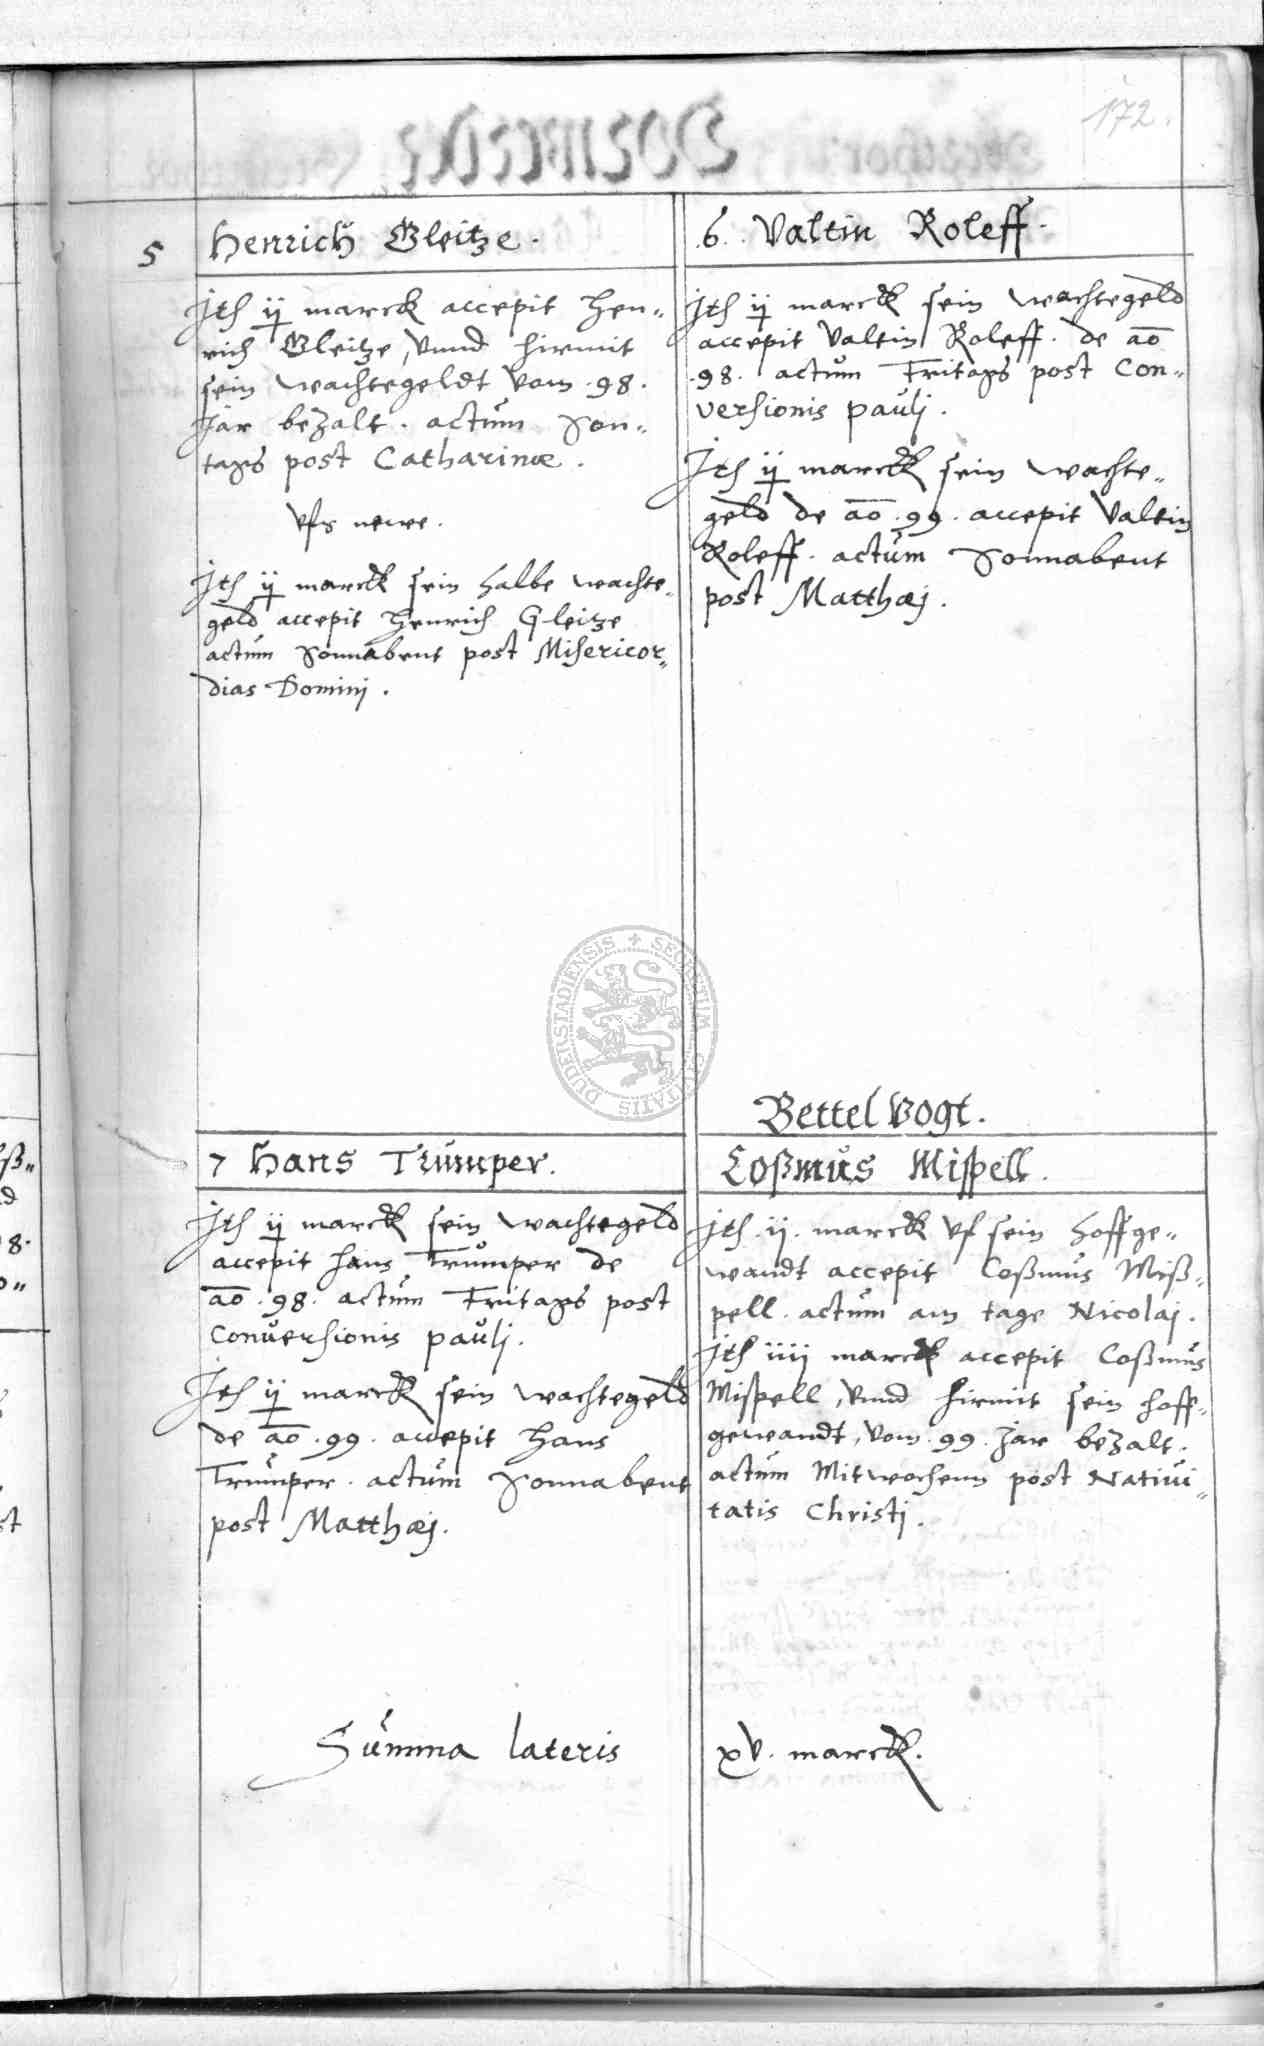 172.
5 Henrich Gleitze.
Jtem ij marck accepit Hen„
rich Gleitze, vnnd hirmit
sein wachtegeldt vom .98.
Jar bezalt. actum Son„
tags post Catharinæ.
vfs newe.
Jtem ij marck sein halbe wachte„
geld accepit Henrich Gleitze
actum Sonnabent post Misericor„
dias Domini.
6. Valtin Roleff.
Jtem ij marck sein wachtegeld
accepit Valtin Roleff. de ao
.98. actum Fritags post Con„
versionis pauli.
Jtem ij marck sein wachte„
geld de ao .99. accepit Valtin
Roleff. actum Sonnabent
post Matthæj.
7 Hans Trumper.
Jtem ij marck sein wachtegeld
accepit Hans Trumper de
ao .98. actum Fritags post
Conversionis pauli.
Jtem ij marck sein wachtegeld
de ao .99. accepit Hans
Trumper. actum Sonnabent
post Matthæj.
Bettel Vogt.
Coßmus Mispell.
Jtem .ij. marck vf sein hoffge„
wandt accepit Coßmus Miß„
pell. actum am tage Nicolaj.
Jtem iiij marck accepit Coßmus
Mispell, vnnd hirmit sein hoff„
gewandt, vom .99. Jar bezalt.
actum Mitwochenn post Nativi„
tatis Christj.
Summa lateris xv. marck.
SECRETUM CIVITATIS DUDERSTADIENSIS